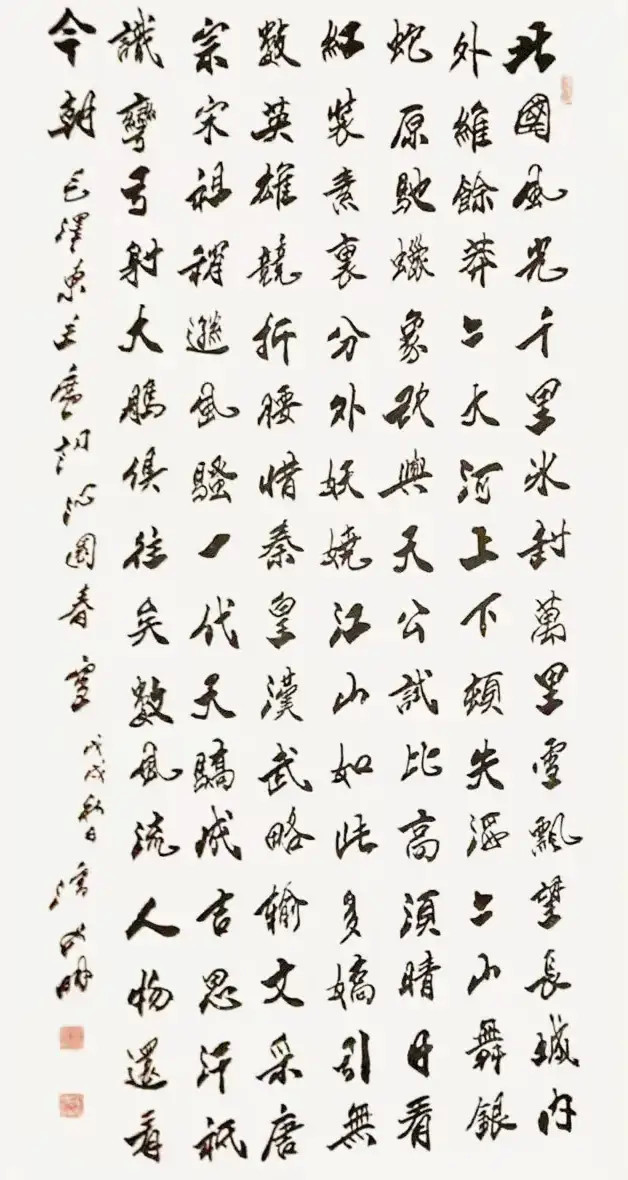 北國風光千里冰封萬里雪飄望長城内
外維餘莽〻大河上下頓失滔〻山舞銀
蛇原馳蠟象欲與天公試比高須晴日看
紅裝素裹分外妖嬈江山如此多嬌引無
數英雄競折腰惜秦皇漢武略輸文采唐
宗宋祖稍遜風騷一代天驕成吉思汗祇
識彎弓射大鵰俱往矣數風流人物還看
今朝 毛澤東主席詞沁園春雪 戊戌秋日